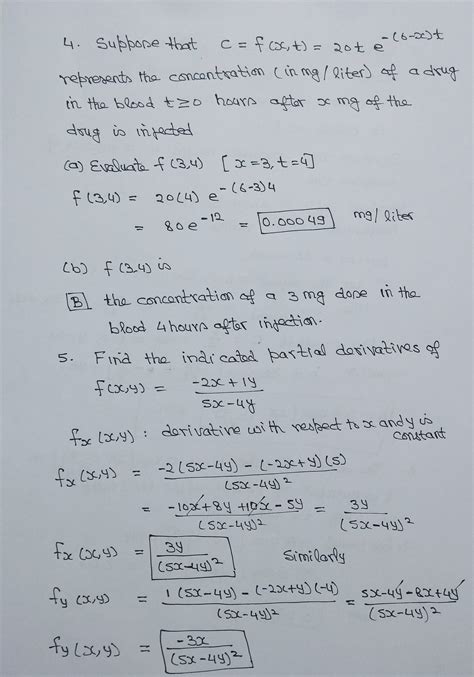 4. Suppose that c = f(x,t) = 20t e^-(6-x)t
represents the concentration (in mg/liter) of a drug
in the blood t≥0 hours after x mg of the
drug is injected
(a) Evaluate f(3,4) [x=3, t=4]
f(3,4) = 20(4) e^-(6-3)4
= 80e^-12 = 0.00049 mg/liter
(b) f(3,4) is
B the concentration of a 3 mg dose in the
blood 4 hours after injection.
5. Find the indicated partial derivatives of
f(x,y) = (-2x + 1y)/(5x-4y)
fx(x,y) : derivative with respect to x and y is
constant
fx(x,y) = (-2(5x-4y) - (-2x+y)(5))/(5x-4y)^2
= (-10x+8y+10x-5y)/(5x-4y)^2 = 3y/(5x-4y)^2
fx(x,y) = 3y/(5x-4y)^2 Similarly
fy(x,y) = (1(5x-4y) - (-2x+y)(-4))/(5x-4y)^2 = (5x-4y-8x+4y)/(5x-4y)^2
fy(x,y) = -3x/(5x-4y)^2